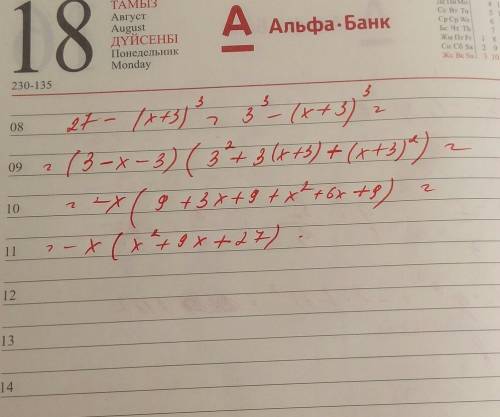 18
ТАМЫЗ
Август
August
ДҮЙСЕНБІ
Понедельник
Monday
230-135
А Альфа·Банк
08 27 - (x+3)³ = 3³ - (x+3)³ =
09 = (3-x-3)(3²+3(x+3)+(x+3)²) =
10 = -x(9+3x+9+x²+6x+9) =
11 = -x(x²+9x+27).
12
13
14